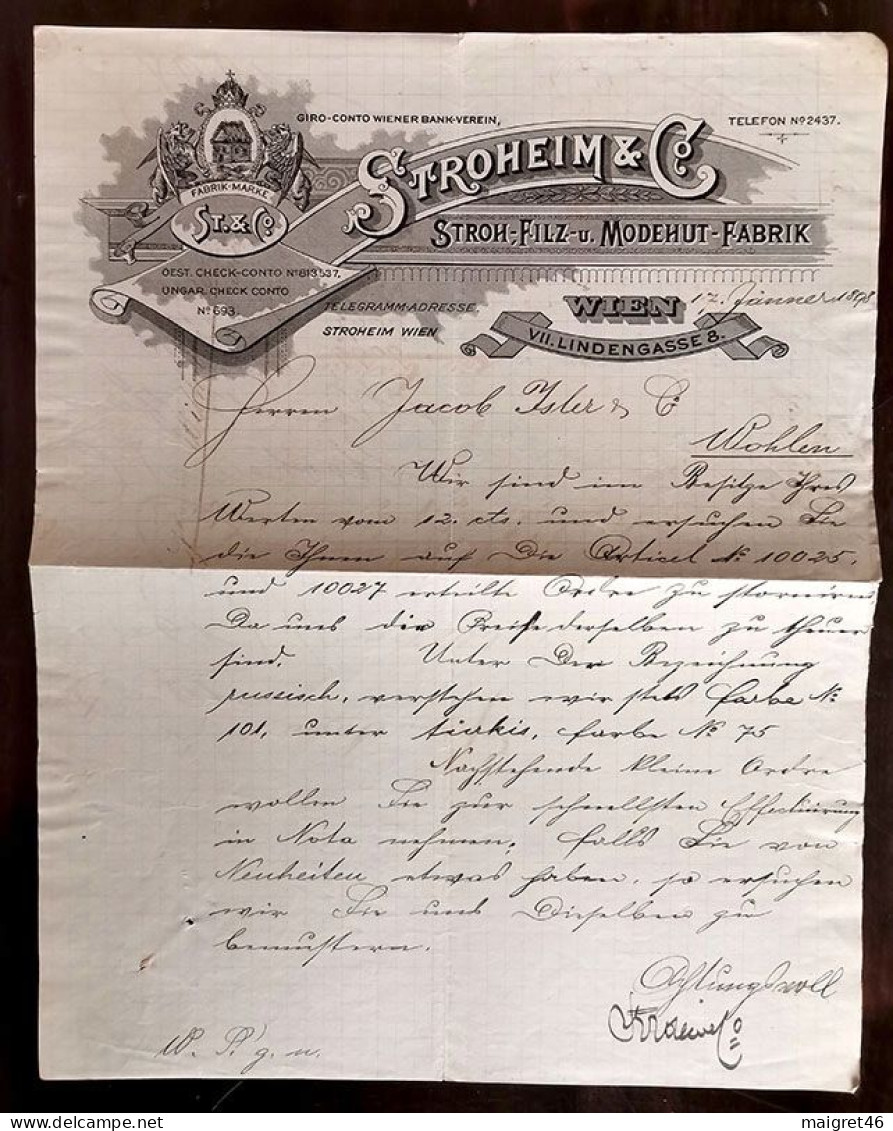 GIRO-CONTO WIENER BANK-VEREIN,
TELEFON Nº 2437.
STROHEIM & Cº
STROH-, FILZ- u. MODEHUT-FABRIK
FABRIK-MARKE
ST. & Cº
OEST. CHECK-CONTO Nº 813537.
UNGAR. CHECK CONTO
Nº 693.
TELEGRAMM-ADRESSE
STROHEIM WIEN.
WIEN 17. Jänner 1898
VII. LINDENGASSE 8.
Herren Jacob Isler & Cº
Wohlen
Wir sind im Besitze Ihres
Werten vom 12. cts. und ersuchen Sie
die Ihnen auf Die Articel Nº 10025.
und 10027 erteilte Ordre zu storniren
Da uns die Preise derselben zu theuer
sind. Unter Der Bezeichnung
russisch, verstehen wir stets farbe Nº
101, unter türkis, farbe Nº 75
Nachstehende kleine Ordre
wollen Sie zur schnellsten Effectuirung
in Nota nehmen, falls Sie von
Neuheiten etwas haben, so ersuchen
wir Sie uns Dieselben zu
bemustern.
Achtungsvoll
W. S! g. u.
maigret46